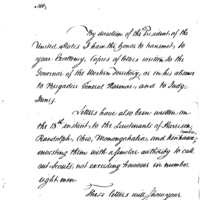 Sir,
By direction of the President of the
United States I have the honor to transmit, to
your Excellency, Copies of letters written to the
Governor of the Western Territory, or in his absence
to Brigadier General Harmar, and to Judge
Innes.
Letters have also been written, on
the 13th instant, to the Lieutenants of Harrison,
Randolph, Ohio, Monongahala, and Kenhawa,
investing them with a similar authority to call
out Scouts, not exceeding however in number
eight men
These letters will shew your